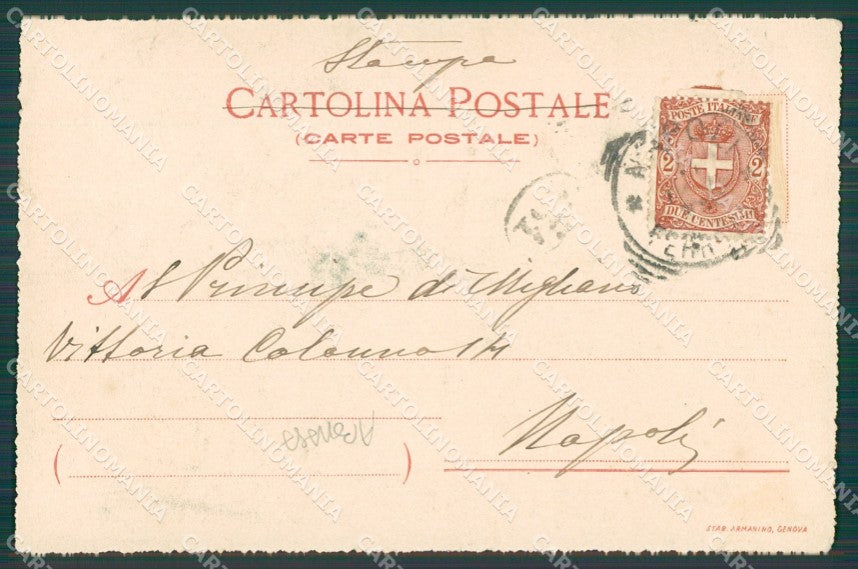 Stampa
CARTOLINA POSTALE
(CARTE POSTALE)
POSTE ITALIANE
2 2
DUE CENTESIMI
Al Principe di Migliano
Vittoria Colonna 14
Napoli
STAB. ARMANINO, GENOVA
CARTOLINOMANIA